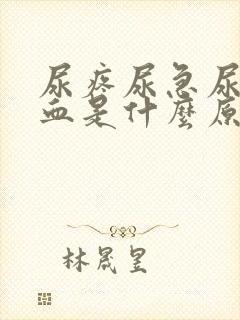 尿疼尿急尿
血是什麼原
林晟昱